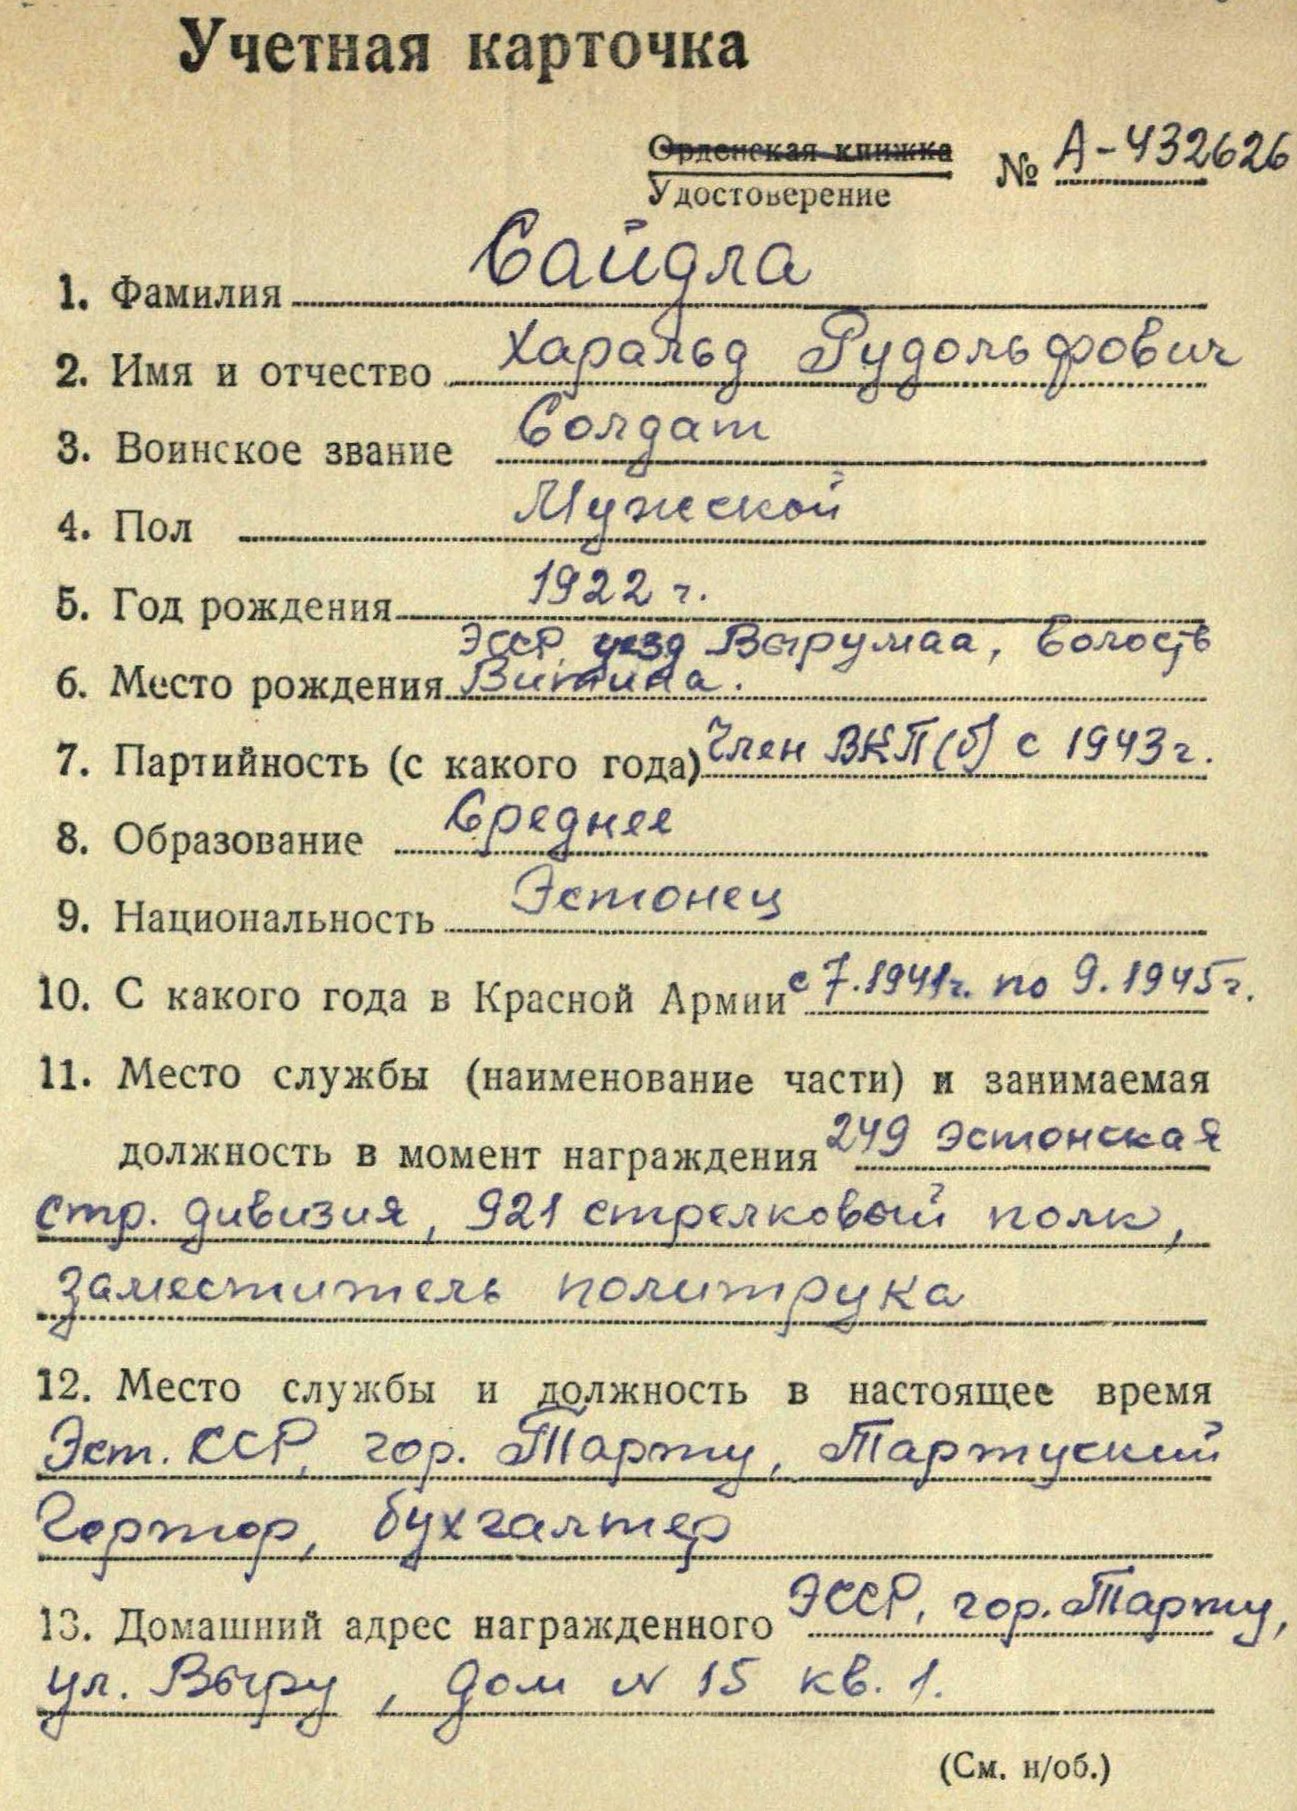 Учетная карточка
Орденская книжка
Удостоверение № А-432626
1. Фамилия Сайдла
2. Имя и отчество Харальд Рудольфович
3. Воинское звание Солдат
4. Пол Мужской
5. Год рождения 1922 г.
ЭССР, уезд Вырумаа, волость
6. Место рождения Витина.
7. Партийность (с какого года) Член ВКП(б) с 1943 г.
8. Образование Среднее
9. Национальность Эстонец
10. С какого года в Красной Армии с 7.1941 г. по 9.1945 г.
11. Место службы (наименование части) и занимаемая
должность в момент награждения 249 эстонская
стр. дивизия, 921 стрелковый полк,
заместитель политрука
12. Место службы и должность в настоящее время
Эст. ССР, гор. Тарту, Тартуский
Гортор, бухгалтер
13. Домашний адрес награжденного ЭССР, гор. Тарту,
ул. Выру, дом N 15 кв. 1.
(См. н/об.)